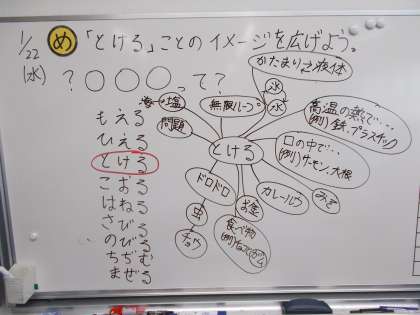 1/22
(水)
め「とける」ことのイメージを広げよう。
?〇〇〇って?
もえる
ひえる
とける
こおる
はねる
さびる
のびる
ちぢむ
まぜる
とける
かたまり→液体
氷
水
無限ループ
塩
問題
高温の熱で…
(例)鉄、プラスチック
口の中で…
(例)サーモン、大根
みそ
カレールウ
お金
食べ物
ドロドロ
虫
チョウ